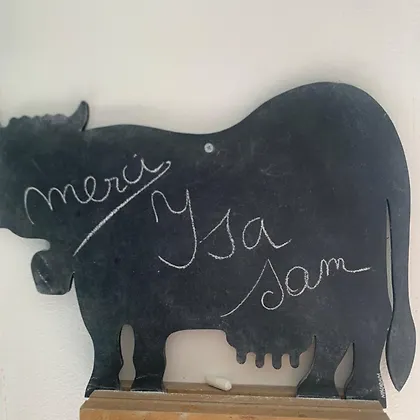 merci
Ysa
sam